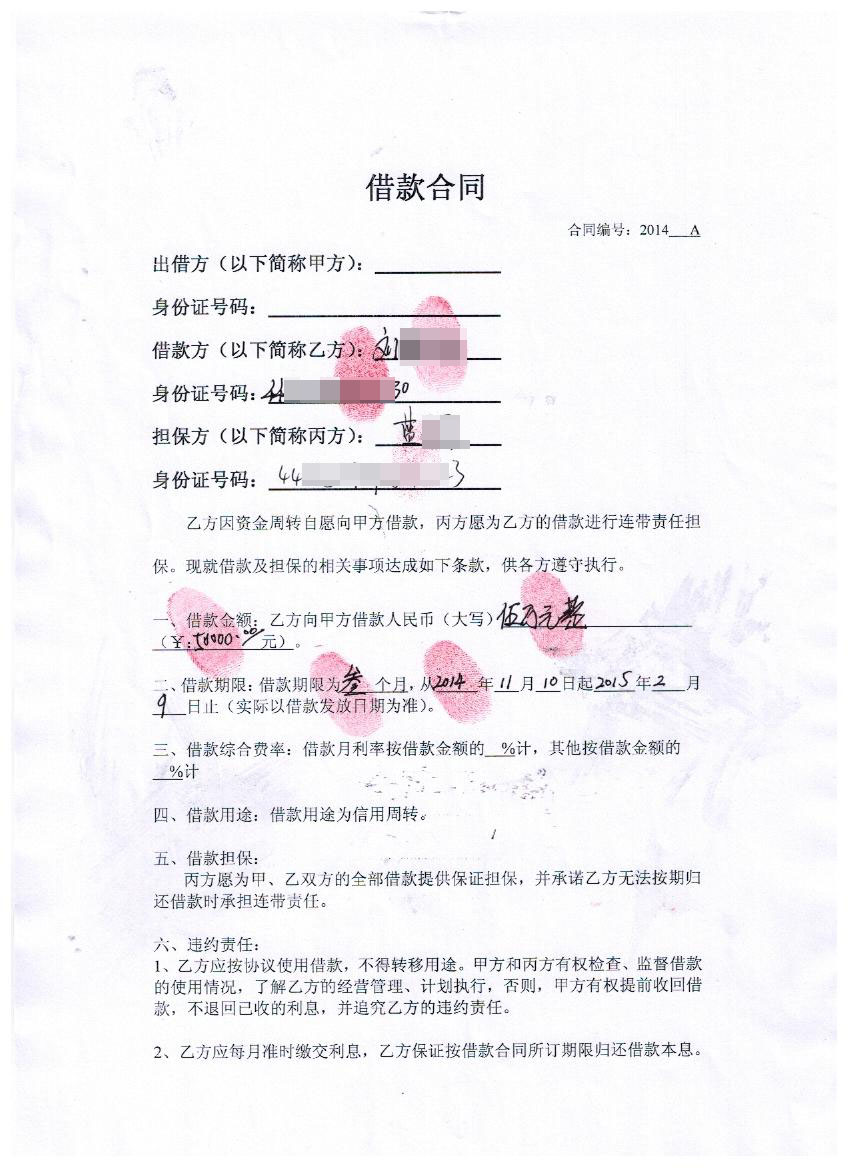 借款合同
合同编号：2014___A
出借方（以下简称甲方）：
身份证号码：
借款方（以下简称乙方）：刘
身份证号码：44 30
担保方（以下简称丙方）：蓝
身份证号码：44 3
乙方因资金周转自愿向甲方借款，丙方愿为乙方的借款进行连带责任担
保。现就借款及担保的相关事项达成如下条款，供各方遵守执行。
一、借款金额：乙方向甲方借款人民币（大写）伍万元整
（￥:50000.00元）。
二、借款期限：借款期限为叁个月，从2014年11月10日起2015年2月
9日止（实际以借款发放日期为准）。
三、借款综合费率：借款月利率按借款金额的__%计，其他按借款金额的
__%计
四、借款用途：借款用途为信用周转。
五、借款担保：
丙方愿为甲、乙双方的全部借款提供保证担保，并承诺乙方无法按期归
还借款时承担连带责任。
六、违约责任：
1、乙方应按协议使用借款，不得转移用途。甲方和丙方有权检查、监督借款
的使用情况，了解乙方的经营管理、计划执行，否则，甲方有权提前收回借
款，不退回已收的利息，并追究乙方的违约责任。
2、乙方应每月准时缴交利息，乙方保证按借款合同所订期限归还借款本息。